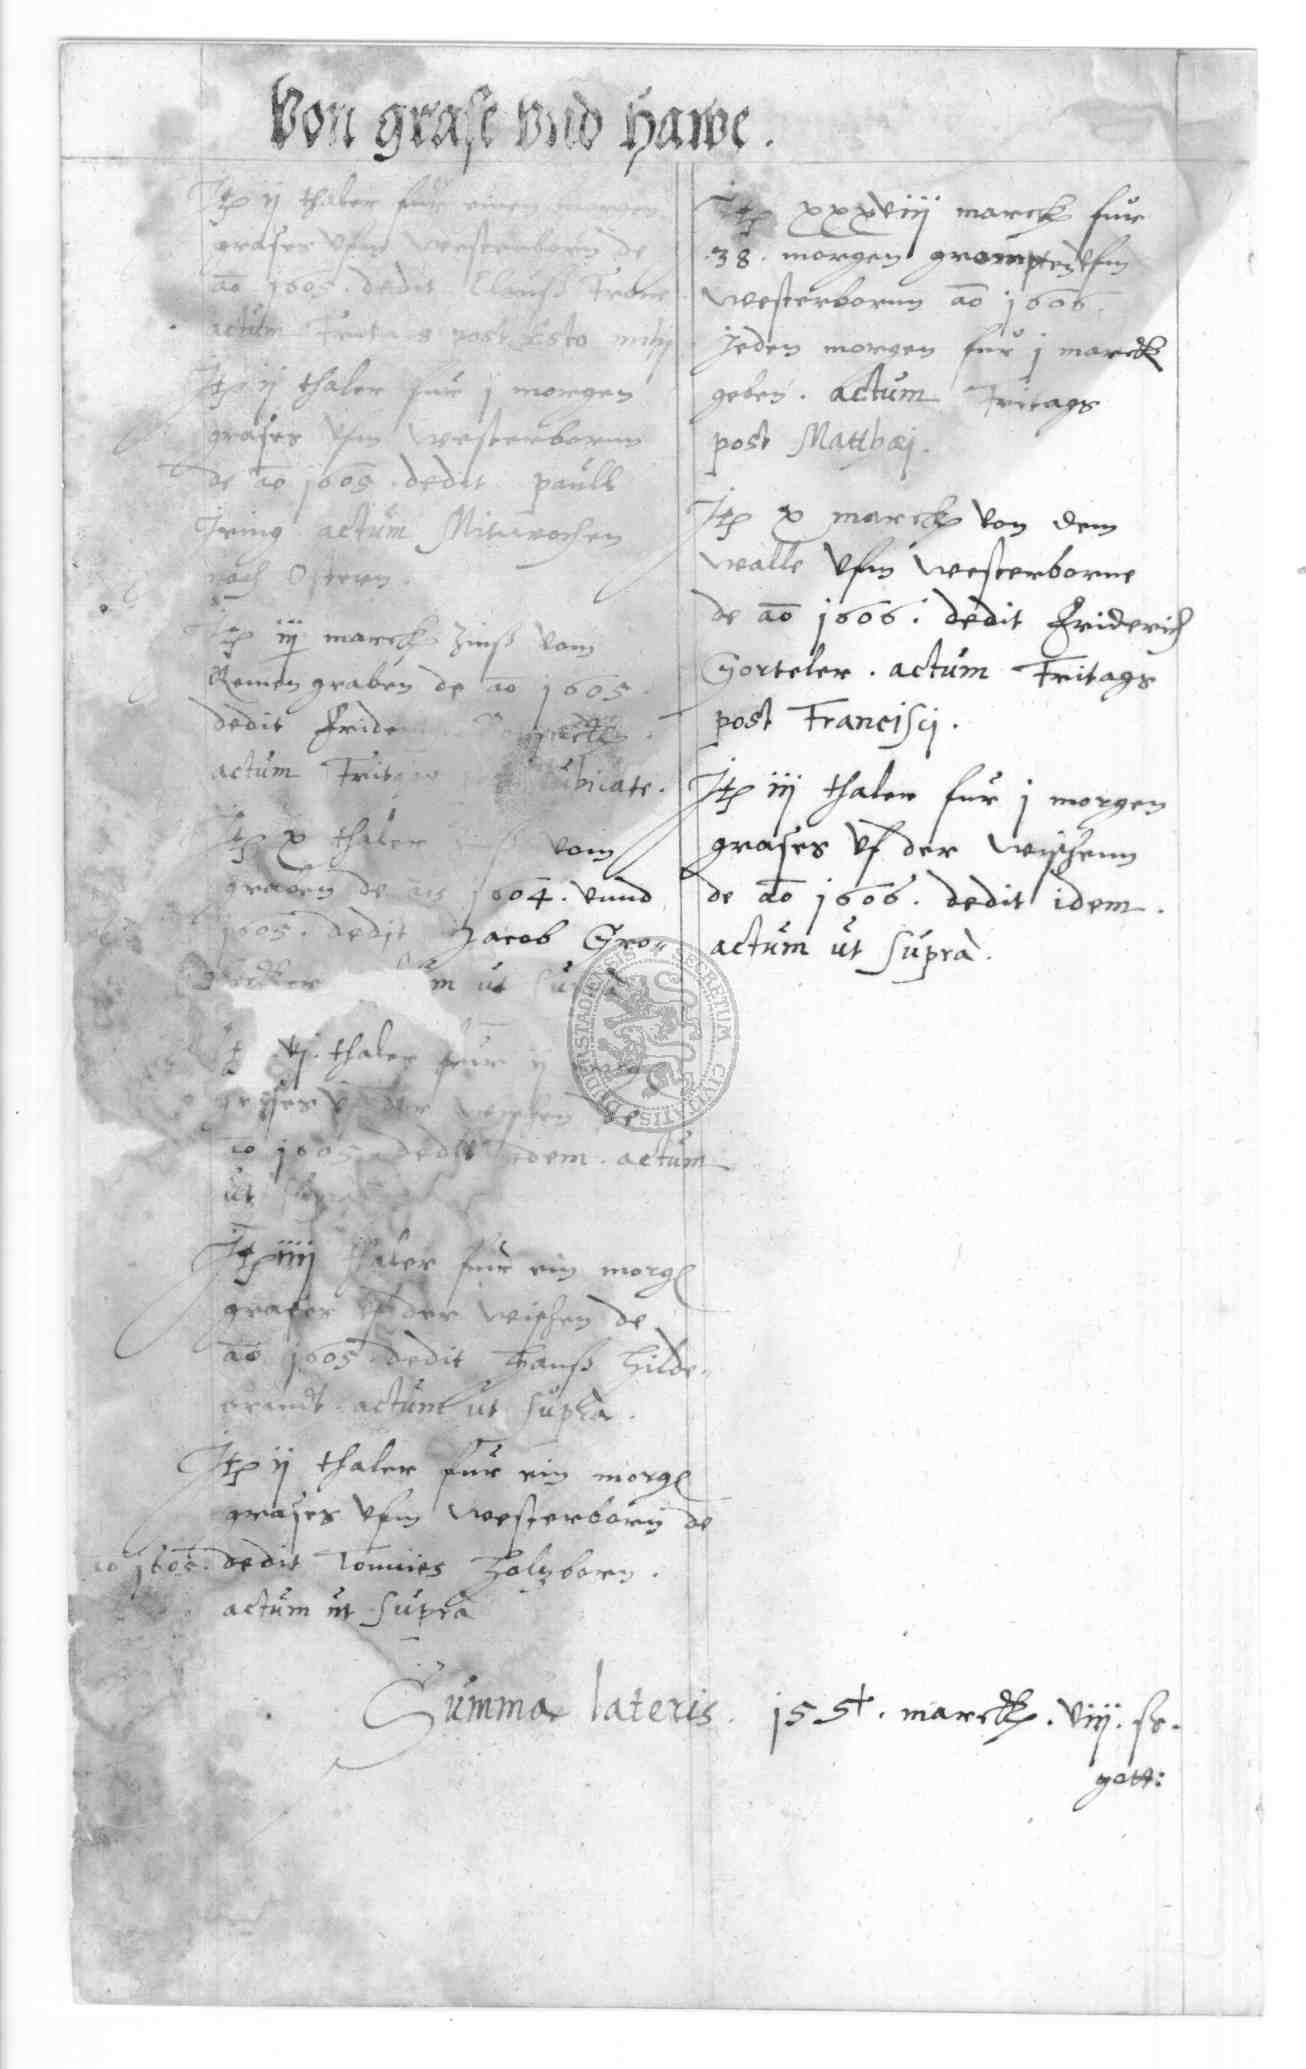 Von grase vnd Hawe.
Jtp ij thaler für einen morgen
grases vfm Westerborn de
ao 1605. dedit Clauß
actum Fritags post Esto mihi
Jtp ij thaler für j morgen
grases vfm Westerbornn
de ao 1605. dedit paull
Jring actum Mitwochen
nach Ostern.
Jtp iij marck Zinß vom
Remen graben de ao 1605.
dedit
actum ubilate.
Jtp x thaler vom
graben de ao 1604. vnnd
1605. dedit Jacob Gro-
m ut supra
Jtp vj. thaler für ij
grases vf der wischen de
ao 1605. dedit idem. actum
ut supra
Jtp iiij thaler für ein morg
grases vf der wischen de
ao 1605. dedit Hanß Hilde-
brandt. actum ut supra.
Jtp ij thaler für ein morg
grases vfm Westerborn de
ao 1605. dedit Tonnies Holzborn.
actum ut supra
Jtp xxxviij marck für
.38. morgen vfm
Westerbornn ao 1606.
Jeden morgen für j marck
geben. actum Fritags
post Matthæj.
Jtp x marck von dem
walle vfm Westerborne
de ao 1606. dedit Friderich
Gorteler. actum Fritags
post Francisci.
Jtp iij thaler für j morgen
grases vf der wischenn
de ao 1606. dedit idem.
actum ut supra.
SECRETUM CIVITATIS DUDERSTADIENSIS
Summa lateris. 155+. marck. viij. ss.
gott: